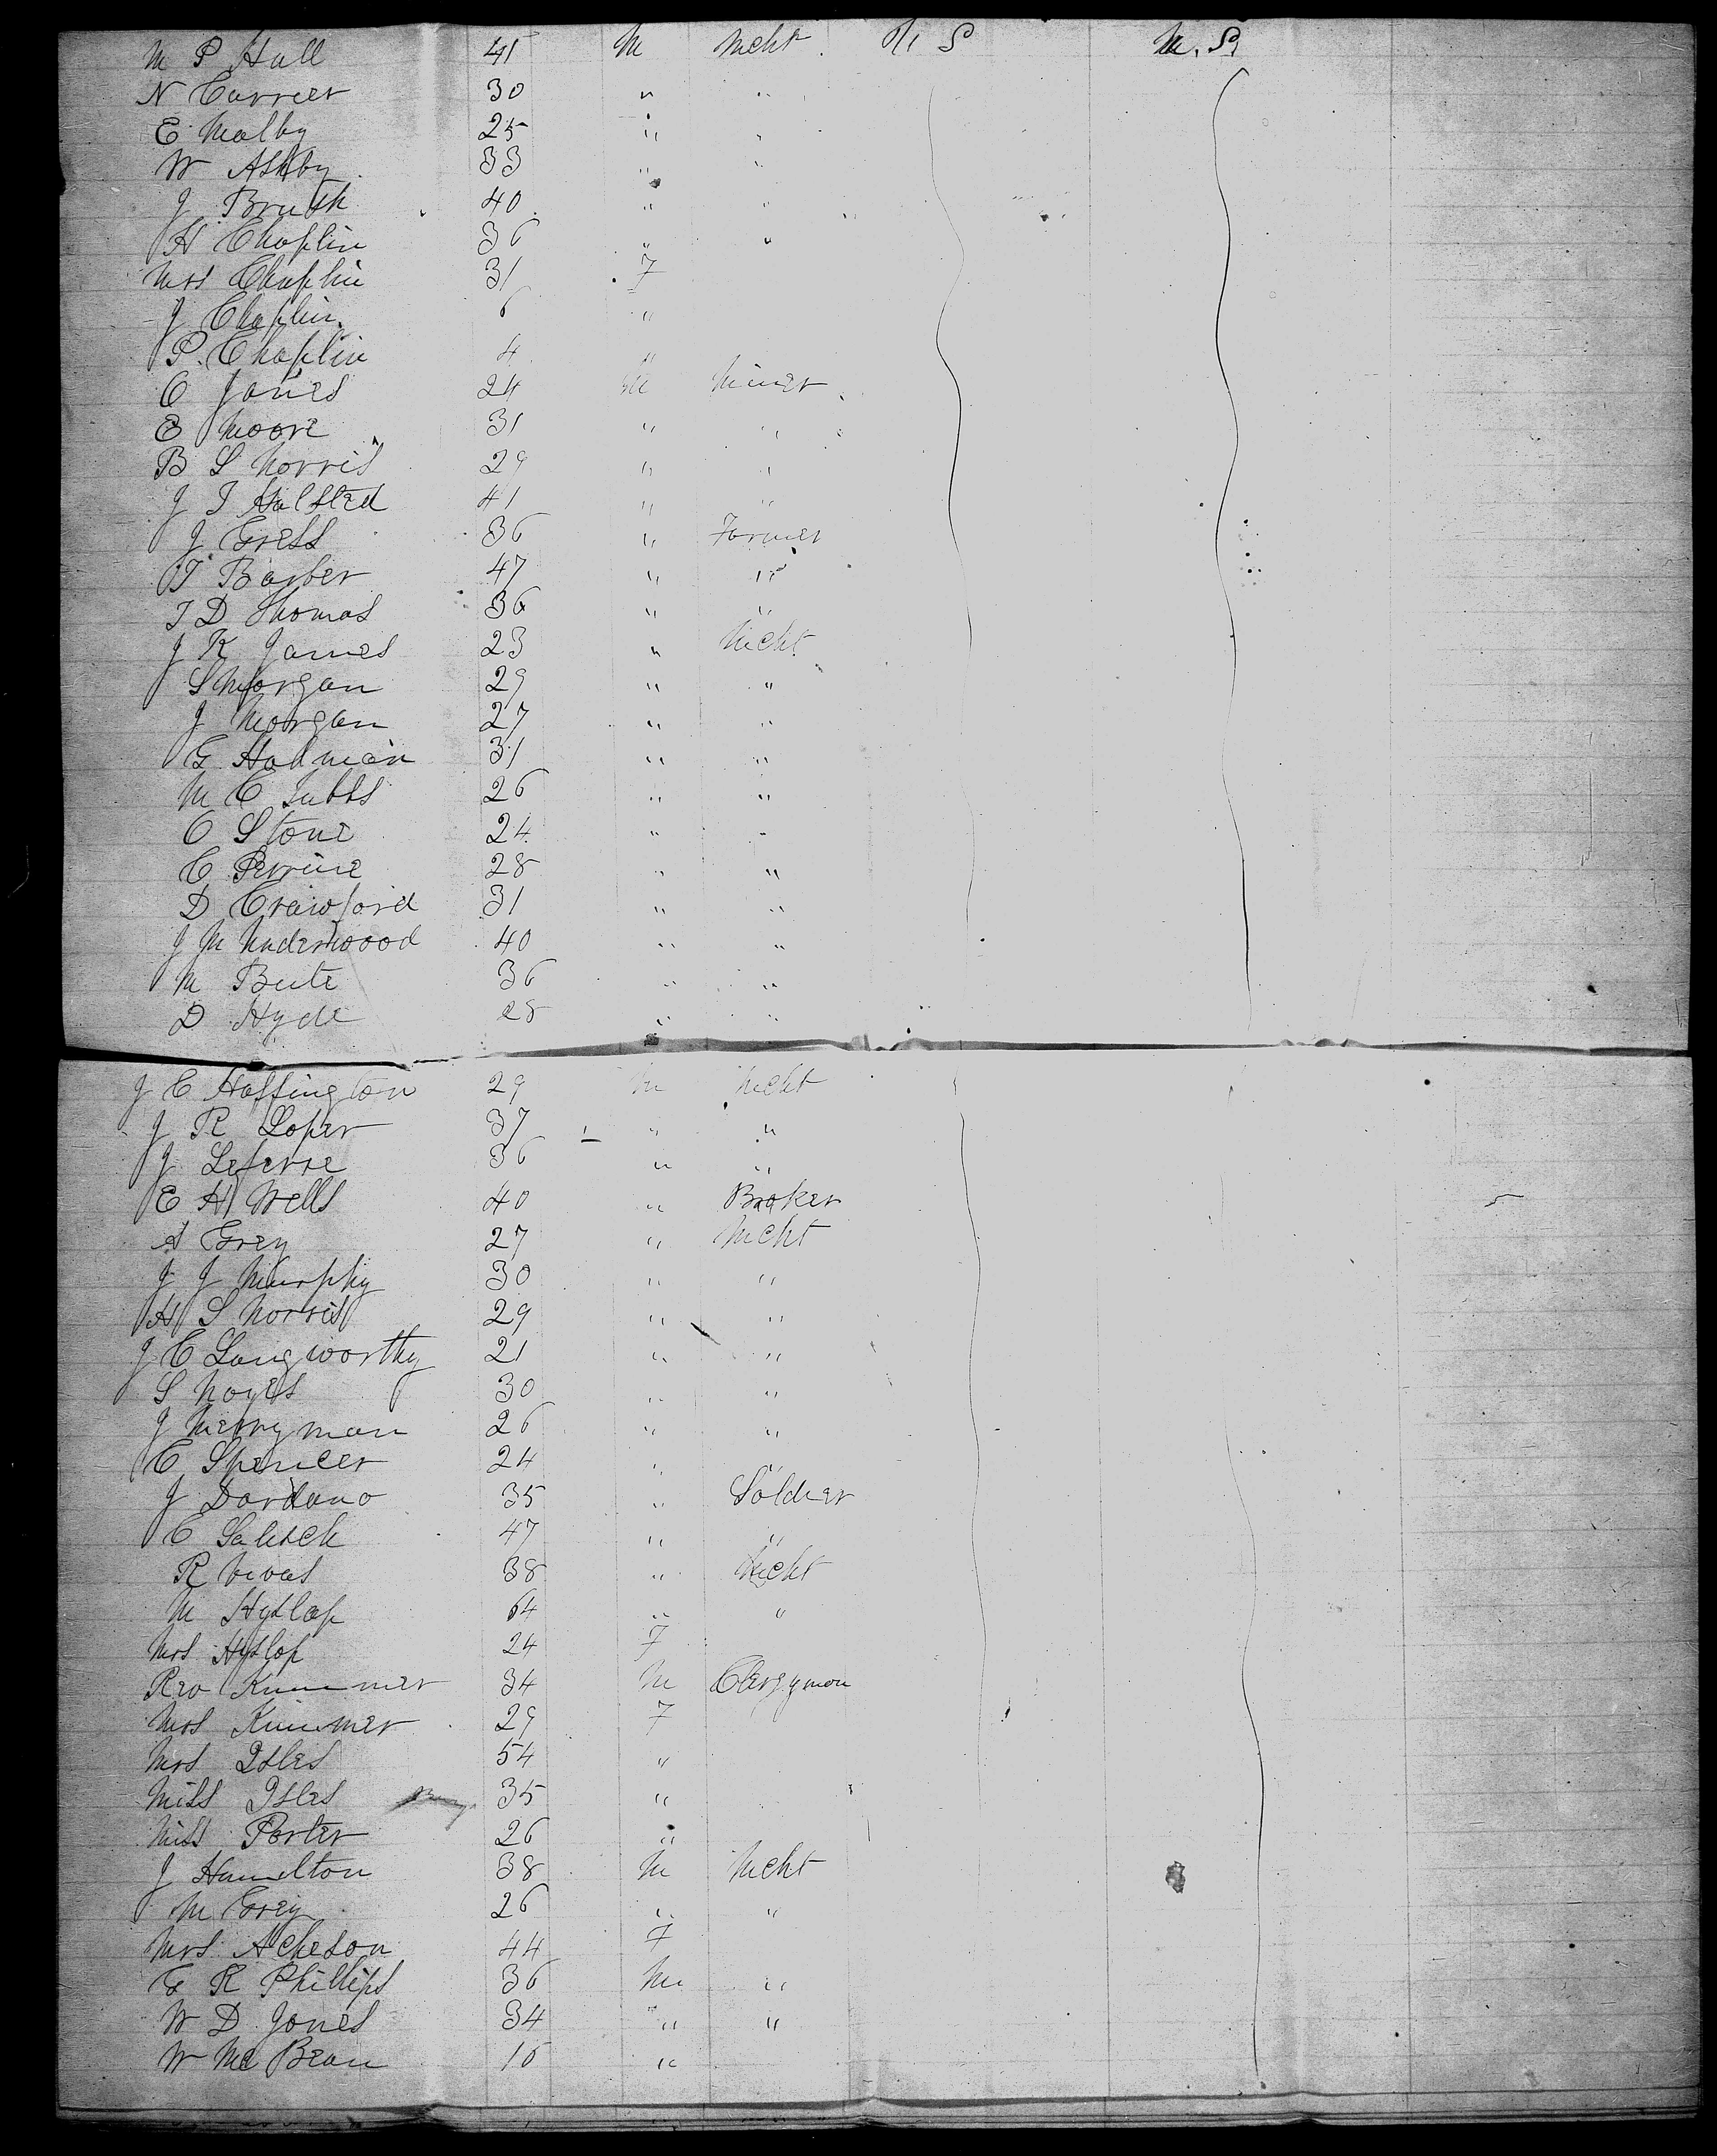 M P Hall 45 M Mcht U S U. S.
N Currier 30 " "
E Malby 25 " "
W Ashby 33 " "
J Brush 40 " "
H Chaplin 36 " "
Mrs Chaplin 31 F
J Chaplin 6 "
P. Chaplin 4 "
C Jones 24 M Miner
E Moore 31 " "
B S Norris 29 " "
J T Halsted 41 " "
J Gress 36 " Farmer
T Barber 47 " "
T D Thomas 36 " "
J K James 23 " Mcht
S Morgan 29 " "
J Morgan 27 " "
G Hadman 31 " "
M C Tubbs 26 " "
C Stone 24 " "
C Perrine 28 " "
D Crawford 31 " "
J M Underwood 40 " "
M Bute 36 " "
D Hyde 28 " "
J C Haffington 29 M Mcht
J R Loper 37 " "
J Lefevre 36 " "
E H Wells 40 " Broker
A Grey 27 " Mcht
J J Murphy 30 " "
H S Norris 29 " "
J C Langworthy 21 " "
S Noyes 30 " "
J Merryman 26 " "
C Spencer 24 " "
J Dardano 35 " Soldier
C 47 " "
R Vivas 38 " Mcht
M Hyslop 64 " "
Mrs Hyslop 24 F
Rev Kummer 34 M Clergyman
Mrs Kummer 29 F
Mrs Isles 54 "
Miss Isles 35 "
Miss Porter 26 "
J Hamilton 38 M Mcht
M Grey 26 " "
Mrs Acheson 44 F
G R Phillips 36 M "
W D Jones 34 " "
W Mc Bean 16 "